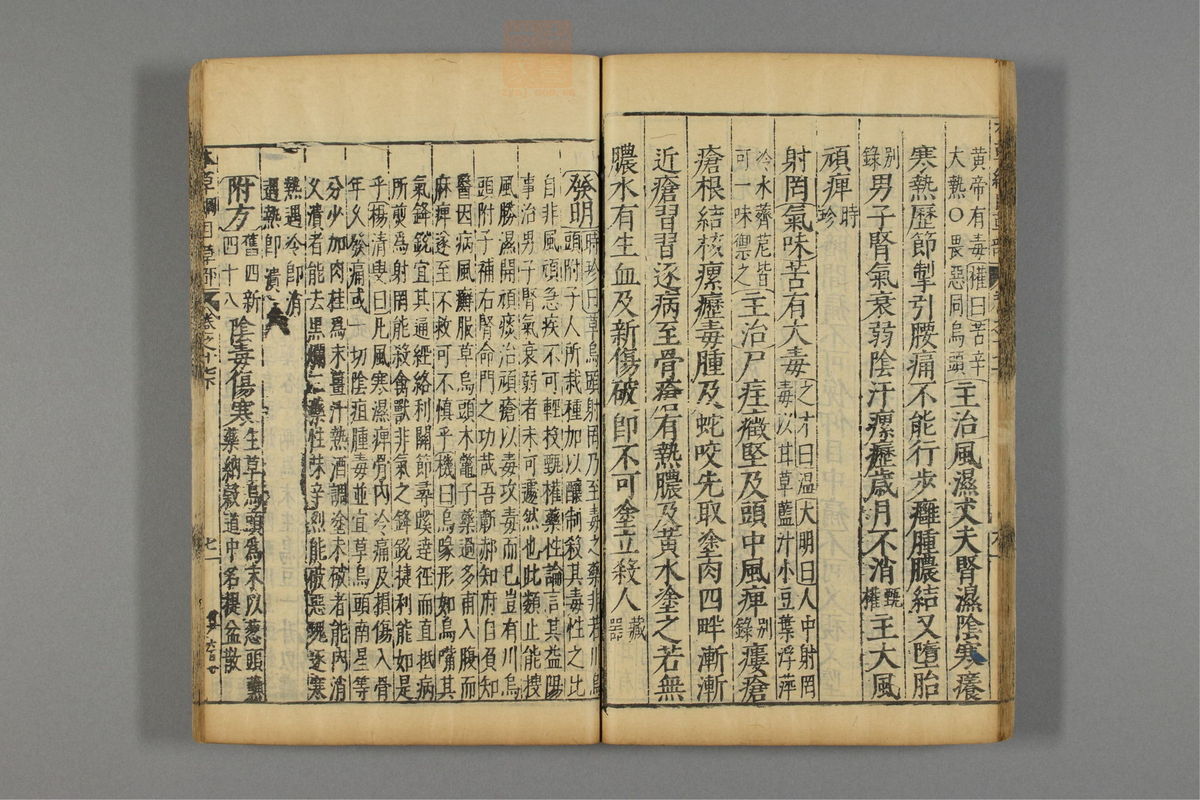 黃帝有毒權曰苦辛
大熱○畏惡同烏頭
主治風濕丈夫腎濕陰寒痒
寒熱歷節掣引腰痛不能行步癰腫膿結又墮胎
别錄男子腎氣衰弱陰汗瘰癧歲月不消甄權主大風
頑痺時珍
射罔氣味苦有大毒之才曰溫大明曰人中射罔毒以甘草藍汁小豆葉浮萍
冷水薺苨皆可一味禦之主治尸疰癥堅及頭中風痺别錄瘻瘡
瘡根結核瘰癧毒腫及蛇咬先取塗肉四畔漸漸
近瘡習習逐病至骨瘡有熱膿及黃水塗之若無
膿水有生血及新傷破即不可塗立殺人藏器
發明時珍曰草烏頭射罔乃至毒之藥非若川烏
頭附子人所栽種加以釀制殺其毒性之比
自非風頑急疾不可輕投甄權藥性論言其益陽
事治男子腎氣衰弱者未可遽然也此類止能搜
風勝濕開頑痰治頑瘡以毒攻毒而已豈有川烏
頭附子補右腎命門之功哉吾蘄郝知府自負知
醫因病風癬服草烏頭木鱉子藥過多甫入腹而
麻痺遂至不救可不慎乎機曰烏喙形如烏嘴其
氣鋒銳宜其通經絡利關節尋蹊達徑而直抵病
所煎爲射罔能殺禽獸非氣之鋒銳捷利能如是
乎楊清叟曰凡風寒濕痺骨內冷痛及損傷入骨
年久發痛或一切陰疽腫毒並宜草烏頭南星等
分少加肉桂爲末薑汁熱酒調塗未破者能內消
久潰者能去黑爛二藥性味辛烈能破惡塊逐寒
熱遇冷即消
遇熱即潰
附方舊四新四十八陰毒傷寒生草烏頭爲末以葱頭蘸藥納穀道中名提盆散
本草綱目草部 卷之十七下 七一